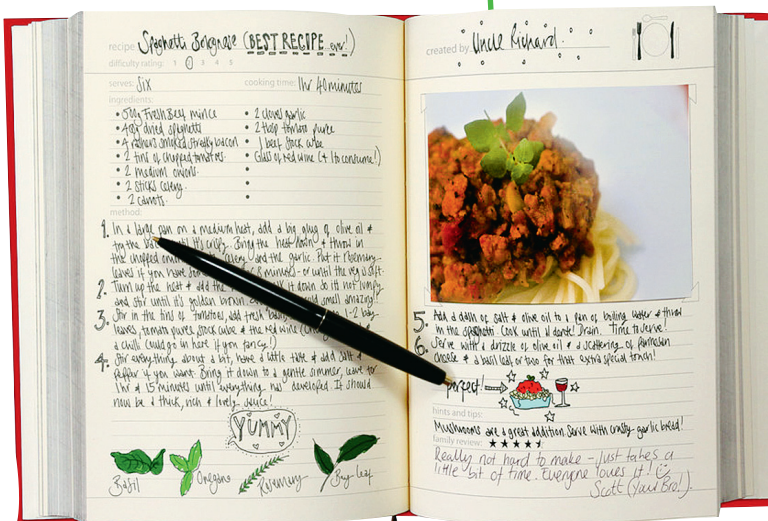 recipe: Spaghetti Bolognese (BEST RECIPE ...ever!)
difficulty rating: 1 2 3 4 5
serves: Six cooking time: 1hr 40minutes
ingredients:
• 500g Fresh Beef mince
• 400g dried spaghetti
• 4 rashers smoked streaky bacon
• 2 tins of chopped tomatoes.
• 2 medium onions.
• 2 sticks celery.
• 2 carrots.
• 2 cloves garlic
• 2 tbsp tomato puree
1 beef stock cube
• Glass of red wine (+ 1 to consume!)
method:
1. In a large pan on a medium heat, add a big glug of olive oil &
fry the until it's crispy. Bring the heat down & throw in
the chopped celery and the garlic. Put it rosemary
leaves if you have some 8 minutes - or until the veg is soft.
2. Turn up the heat & add the it down so it's not lumpy
and stir until it's golden brown. smell amazing!
3. Stir in the tins of tomatoes, add fresh 1-2 bay
leaves, tomato puree, stock cube & the red wine
a chilli could go in here if you fancy!)
4. Stir everything about a bit, have a little taste & add salt &
pepper if you want. Bring it down to a gentle simmer, leave for
1hr & 15 minutes until everything has developed. It should
now be a thick, rich & lovely sauce!
YUMMY
Basil
Oregano
Rosemary
Bay-leaf
created by: Uncle Richard.
5. Add a dash of salt & olive oil to a pan of boiling water & throw
in the spaghetti. Cook until al dente! Drain. Time to serve!
6. Serve with a drizzle of olive oil & a scattering of parmesan
cheese & a basil leaf or two for that extra special touch!
perfect!
hints and tips:
Mushrooms are a great addition. Serve with crusty garlic bread!
family review:
Really not hard to make - just takes a
little bit of time. Everyone loves it!
Scott (Your Bro!).